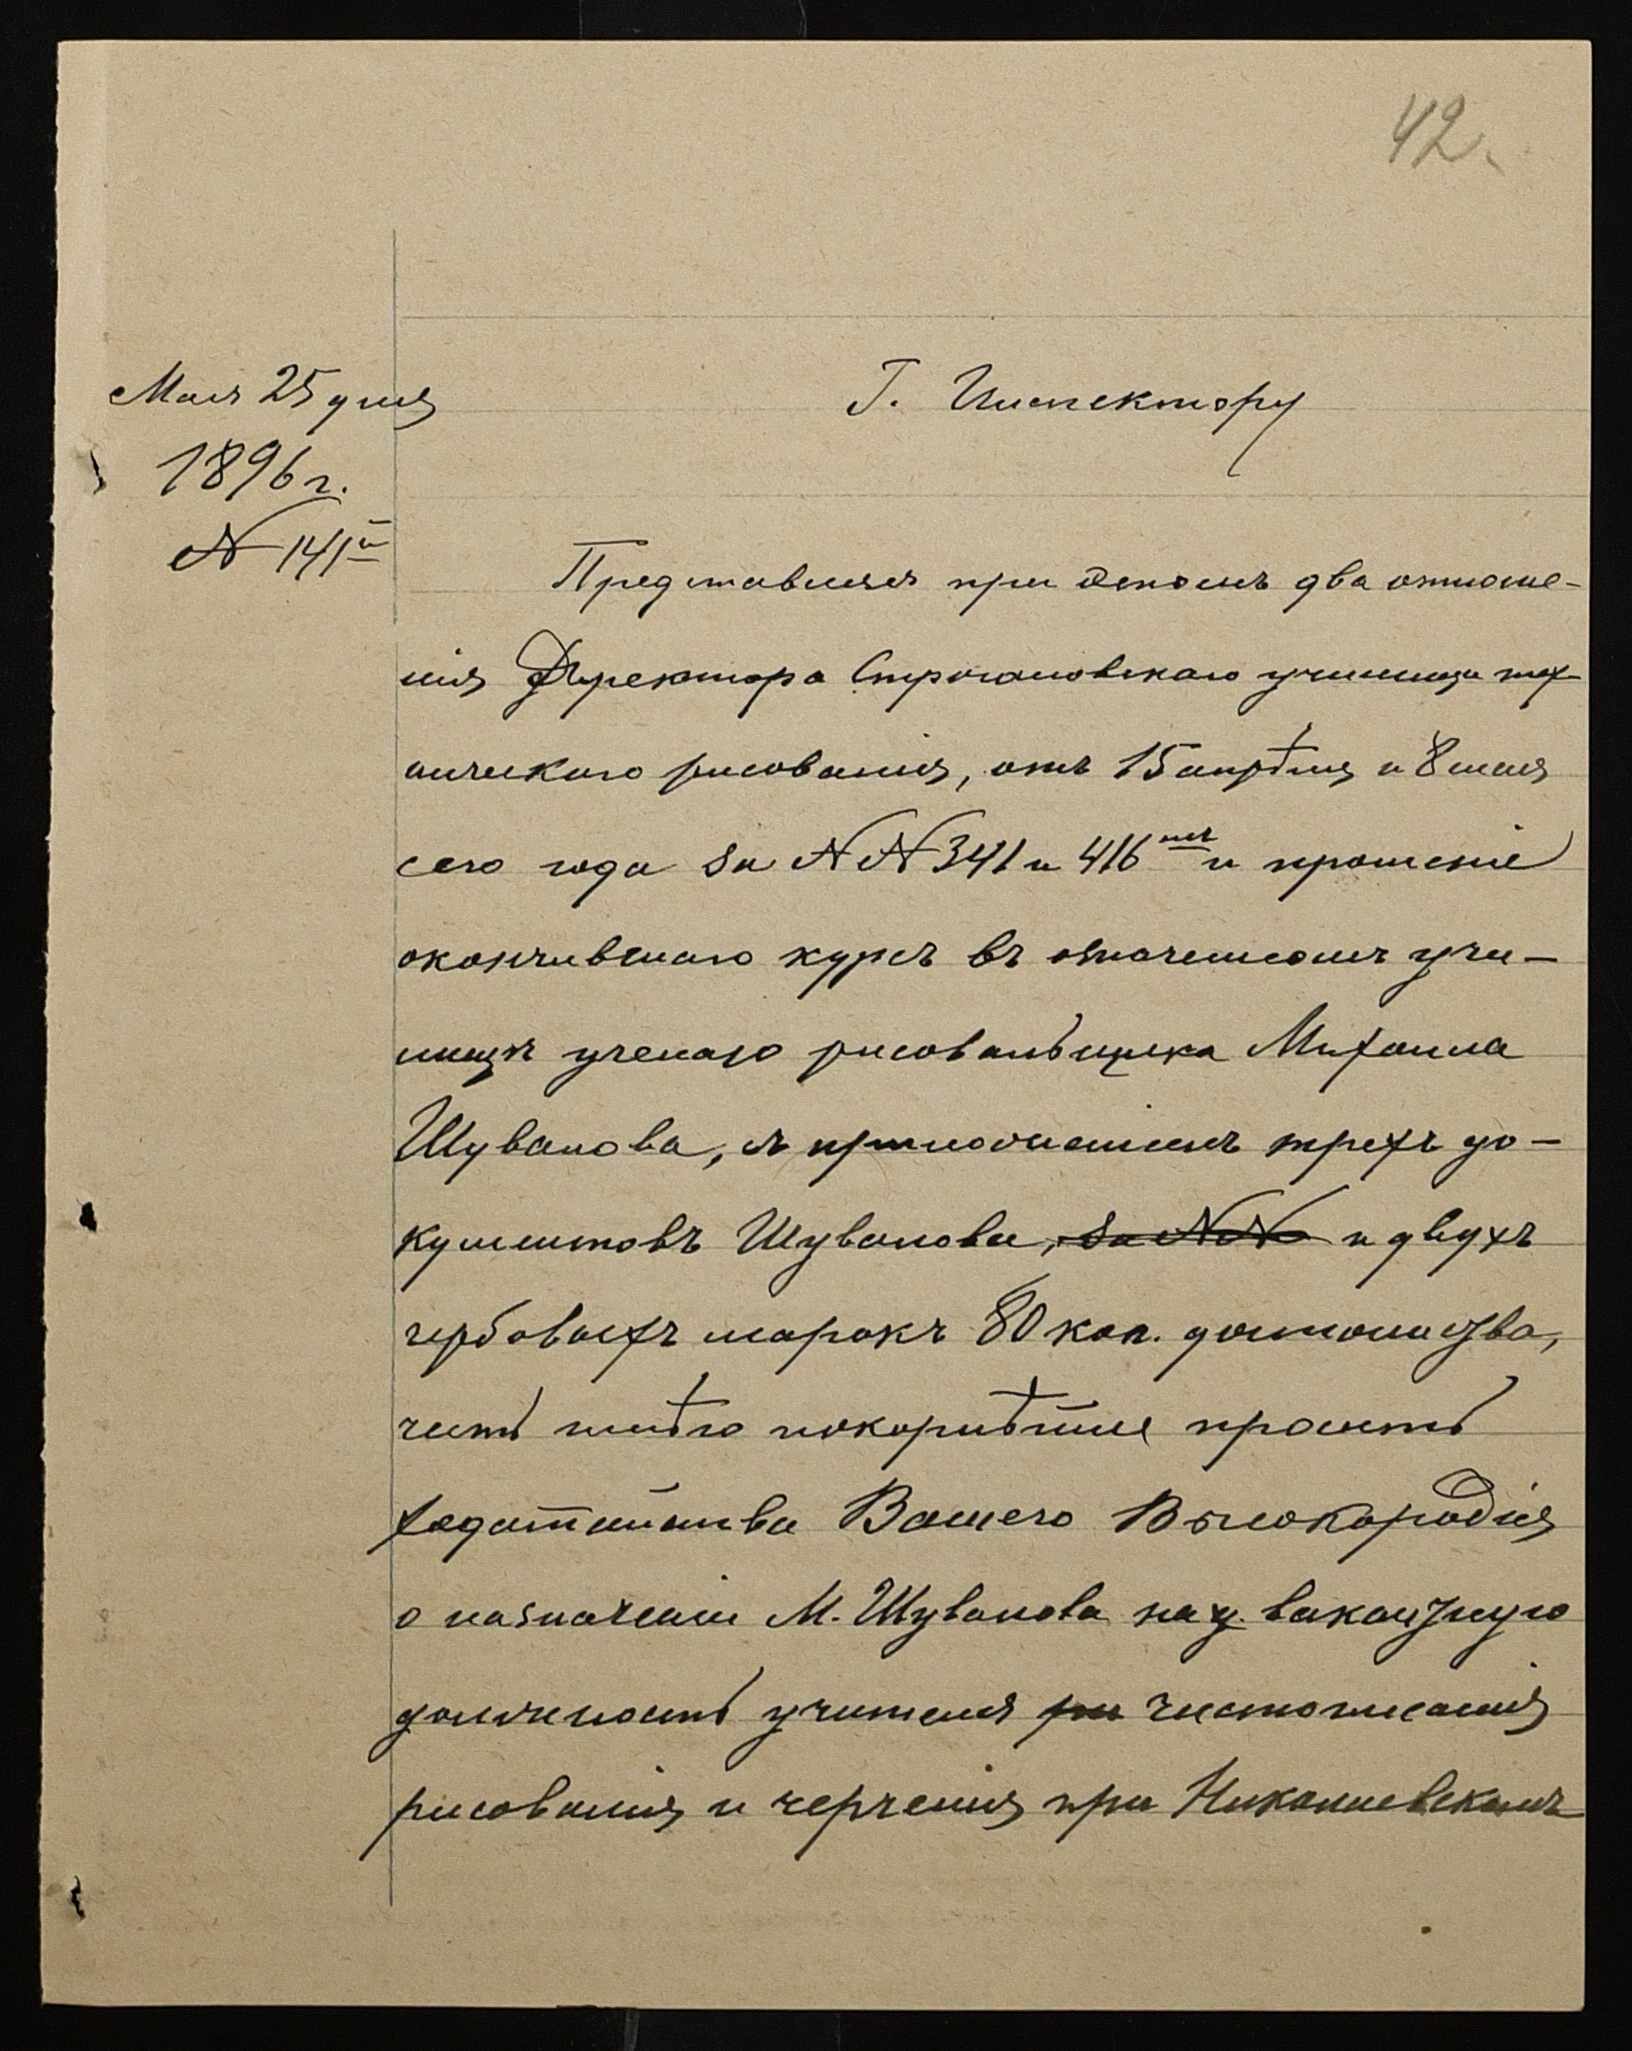 42.
Мая 25 дня
1896 г.
№ 141й
Г. Инспектору
Представляя при этомъ два отноше-
нія Директора Строгановскаго училища тех-
ническаго рисованія, отъ 15 апрѣля и 8 мая
сего года за №№ 341 и 416мъ и прошеніе
окончившаго курсъ въ означенномъ учи-
лищѣ ученаго рисовальщика Михаила
Шувалова, съ приложеніемъ трехъ до-
кументовъ Шувалова, за №№ и двухъ
гербовыхъ марокъ 80 коп. достоинства,
честь имѣю покорнѣйше просить
ходатайства Вашего Высокородія
о назначеніи М. Шувалова на вакантную
должность учителя ри чистописанія
рисованія и черченія при Николаевскомъ